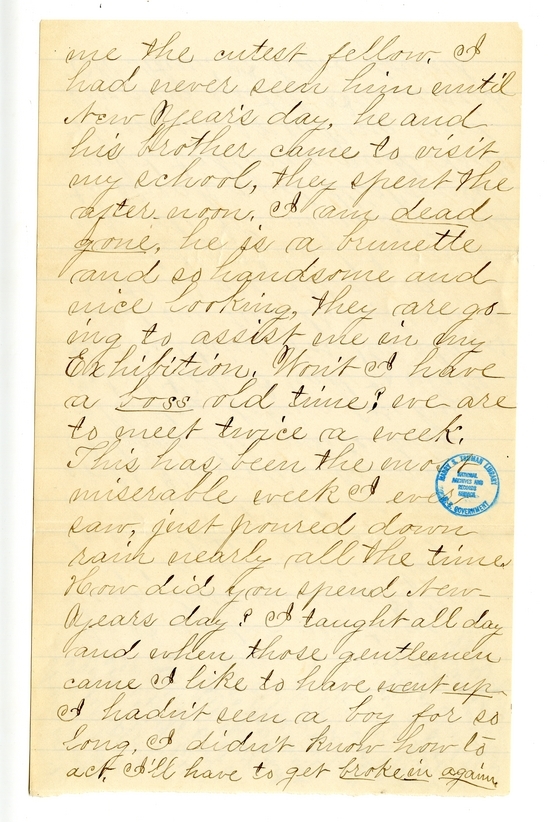 me the cutest fellow. I
had never seen him until
New Year's day, he and
his brother came to visit
my school, they spent the
after-noon. I am dead
gone, he is a brunette
and so handsome and
nice looking, they are go-
ing to assist me in my
Exhibition. Won't I have
a boss old time? we are
to meet twice a week.
This has been the mo
miserable week I eve
saw, just poured down
rain nearly all the time.
How did you spend New-
Years day? I taught all day
and when those gentlemen
came I like to have went up
I hadn't seen a boy for so
long, I didn't know how to
act. I'll have to get broke in again.
HARRY S. TRUMAN LIBRARY
NATIONAL
ARCHIVES AND
RECORDS
SERVICE
U.S. GOVERNMENT